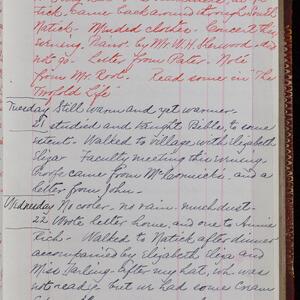 Natick. Came back around through South
Natick. Mended clothes. Concert this
evening. Piano by Mr. W. H. Sherwood. did
not go. Letter from Pater. Note
from Mr. Rolf. Read some in "The
Twofold Life"
Tuesday Still warm and yet warmer.
21 studied and taught Bible, to some
extent. Walked to Village with Elizabeth
Eliza Faculty meeting this evening.
Proofs came from McCormick's, and a
letter from John.
Wednesday No cooler, no rain, much dust.
22 Wrote letter home, and one to Annie
Rich. Walked to Natick after dinner
accompanied by Elizabeth Eliza and
Miss Darling. After my hat, wh. was
not ready but we had some Cream